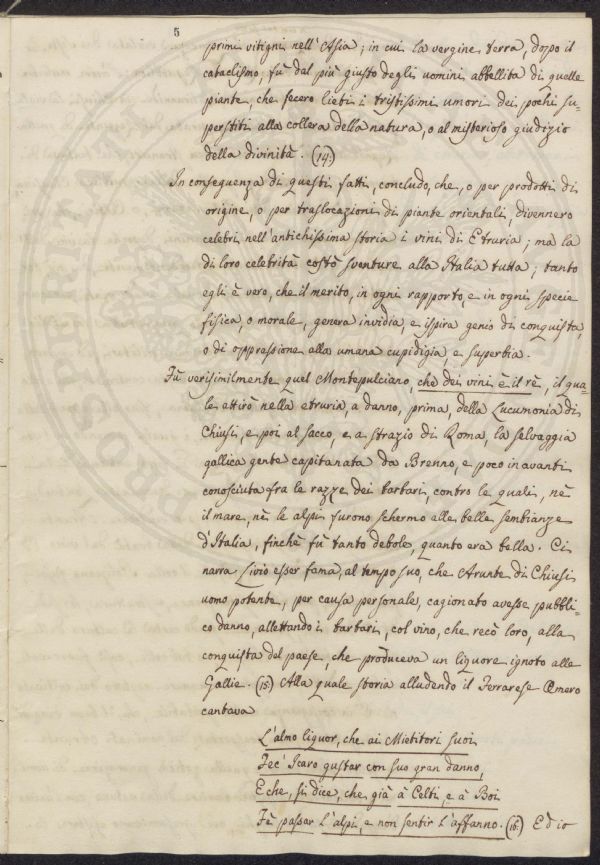 5
primi vitigni nell'Asia; in cui la vergine terra, dopo il
cataclismo, fù dal più giusto degli uomini abbellita di quelle
piante, che fecero lieti i tristissimi umori dei pochi su-
perstiti alla collera della natura, o al misterioso giudizio
della divinità. (14.)
In conseguenza di questi fatti, concludo, che, o per prodotti di
origine, o per traslocazioni di piante orientali, divennero
celebri nell'antichissima storia i vini di Etruria; mà la
di loro celebrità costò sventure alla Italia tutta; tanto
egli è vero, che il merito, in ogni rapporto, e in ogni specie
fisica, o morale, genera invidia, e ispira genio di conquista,
o di oppressione alla umana cupidigia e superbia.
Fù verisimilmente quel Montepulciano, che dei vini è il rè, il qua-
le attirò nella etruria, a danno, prima, della Lucumonia di
Chiusi, e poi al sacco, e a strazio di Roma, la selvaggia
gallica gente capitanata da Brenno, e poco in avanti
conosciuta frà le razze dei barbari, contro le quali, nè
il mare, nè le alpi furono schermo alle belle sembianze
d'Italia, finchè fù tanto debole, quanto era bella. Ci
narra Livio esser fama, al tempo suo, che Arunte di Chiusi
uomo potente, per causa personale, cagionato avesse pubbli-
co danno, allettando i barbari, col vino, che recò loro, alla
conquista del paese, che produceva un liquore ignoto alle
Gallie. (15.) Alla quale storia alludendo il Ferrarese Omero
cantava
L'almo liquor, che ai Mietitori suoi
Fec' Icaro gustar con suo gran danno,
E che, si dice, che già à Celti, e à Boi
Fè passar l'alpi, e non sentir l'affanno. (16.) Ed io